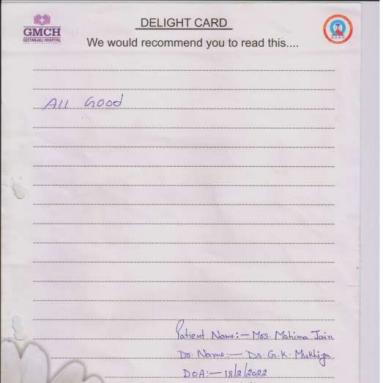 GMCH
GEETANJALI HOSPITAL
DELIGHT CARD
We would recommend you to read this....
All Good
Patient Name:- Mrs. Mahima Jain
Dr. Name:- Dr. G.K. Mukhiya
DOA:- 18/2/2022